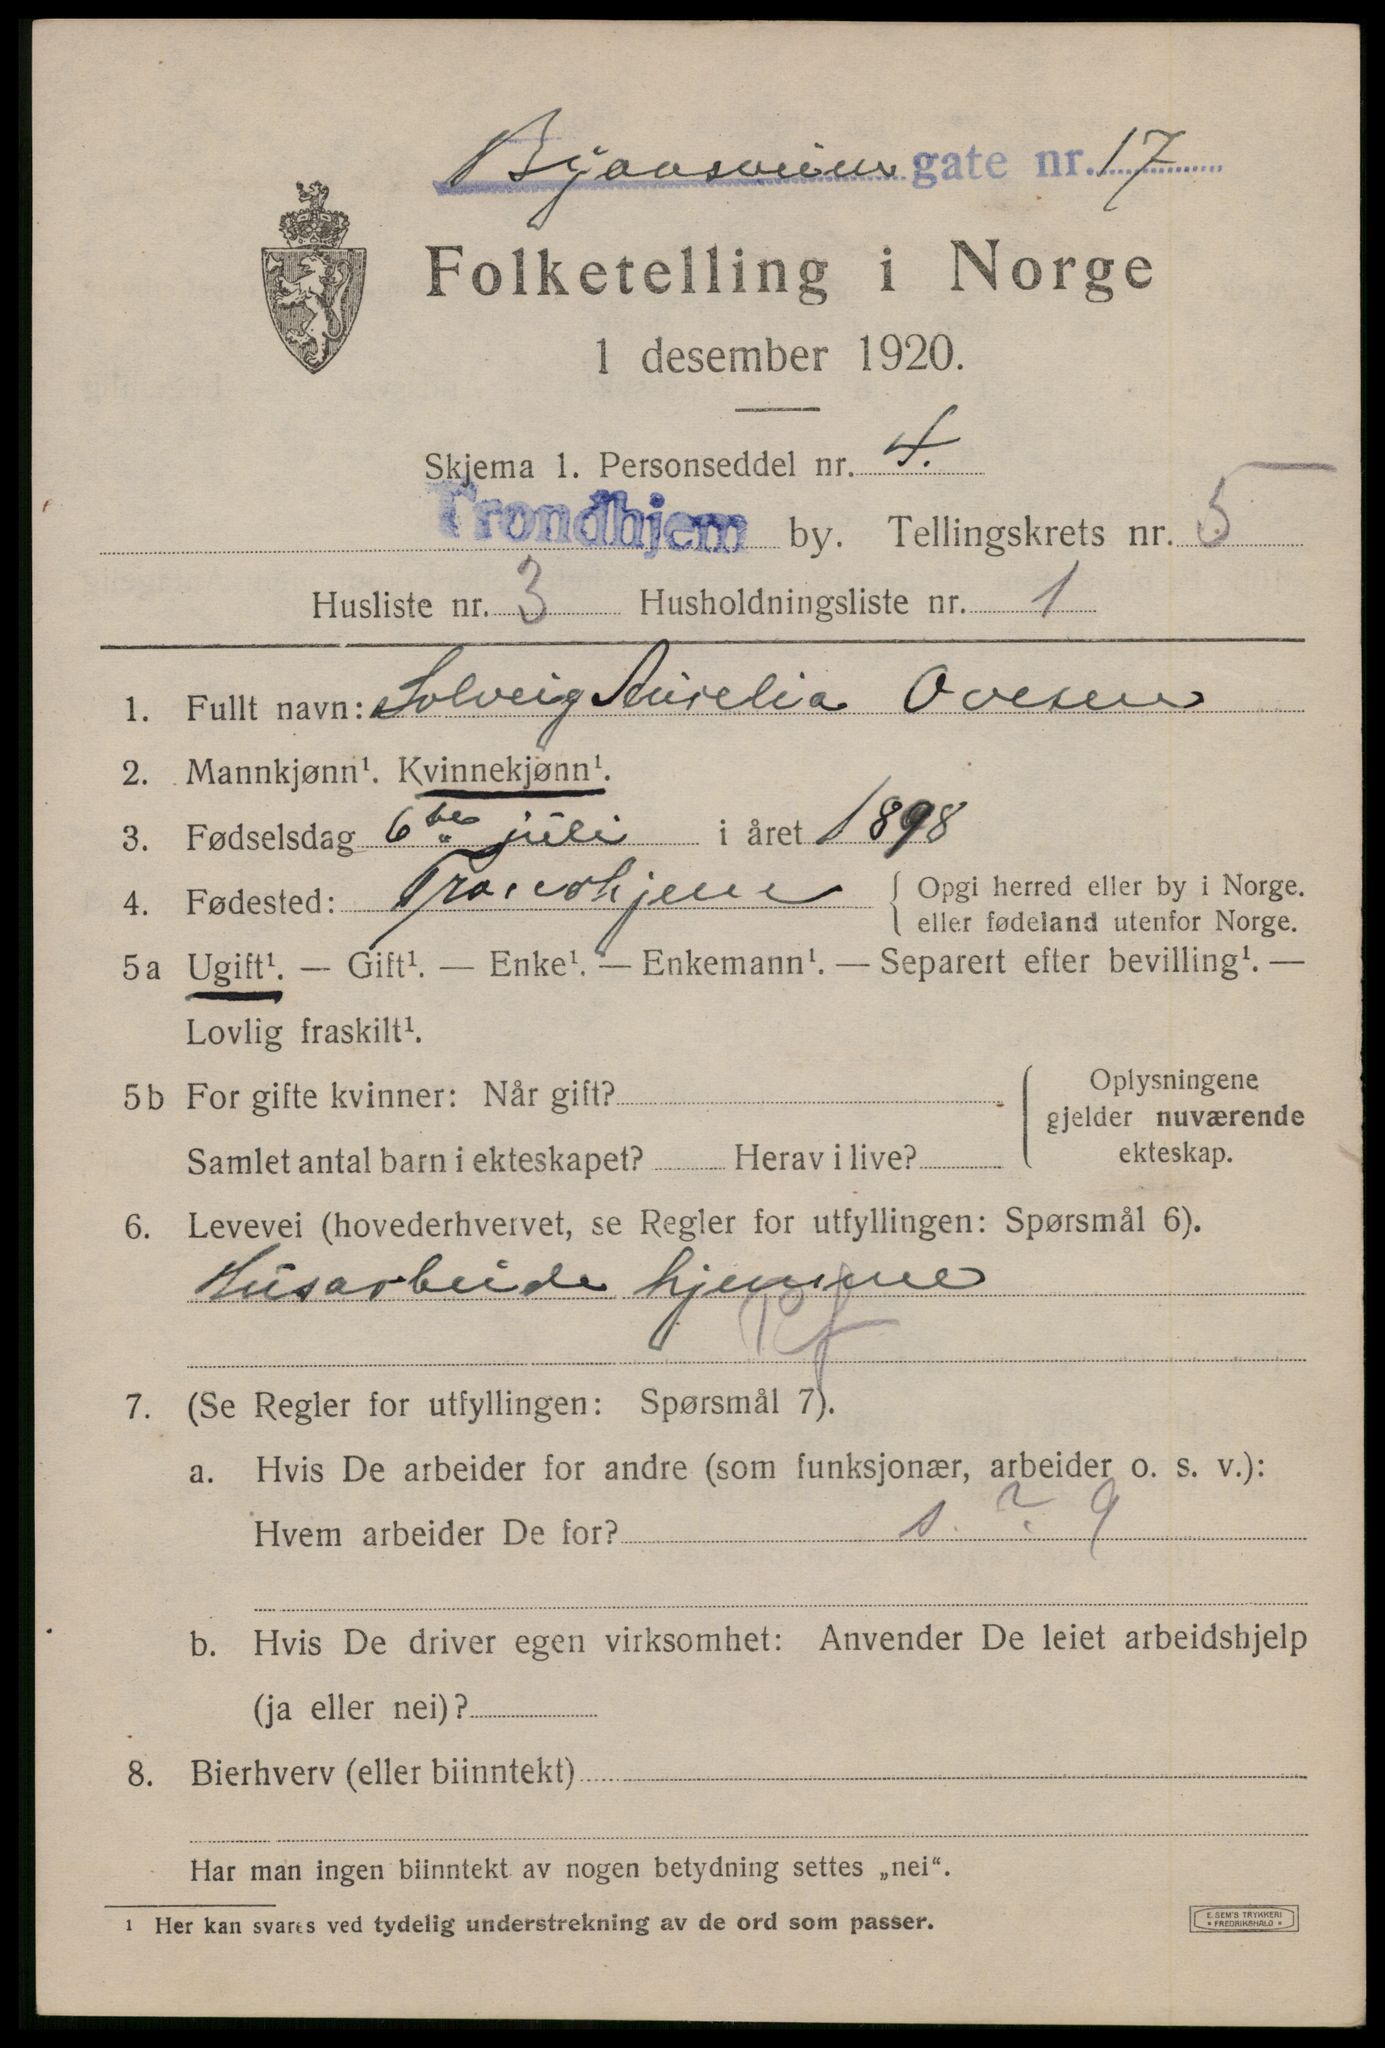 Byaasveien gate nr. 17
Folketelling i Norge
1 desember 1920.
Skjema 1. Personseddel nr. 4.
Trondhjem by. Tellingskrets nr. 5
Husliste nr. 3 Husholdningsliste nr. 1
1. Fullt navn: Solveig Aurelia Ovesen
2. Mannkjønn¹. Kvinnekjønn¹.
3. Fødselsdag 6te juli i året 1898
4. Fødested: Trondhjem { Opgi herred eller by i Norge.
eller fødeland utenfor Norge.
5a Ugift¹. — Gift¹. — Enke¹. — Enkemann¹. — Separert efter bevilling¹. —
Lovlig fraskilt¹.
5b For gifte kvinner: Når gift?
Samlet antal barn i ekteskapet? Herav i live?
Oplysningene
gjelder nuværende
ekteskap.
6. Levevei (hovederhvervet, se Regler for utfyllingen: Spørsmål 6).
Husarbeide hjemme
7. (Se Regler for utfyllingen: Spørsmål 7).
a. Hvis De arbeider for andre (som funksjonær, arbeider o. s. v.):
Hvem arbeider De for? s. ? 9
b. Hvis De driver egen virksomhet: Anvender De leiet arbeidshjelp
(ja eller nei)?
8. Bierhverv (eller biinntekt)
Har man ingen biinntekt av nogen betydning settes „nei“.
¹ Her kan svares ved tydelig understrekning av de ord som passer.
E. SEM'S TRYKKERI
FREDRIKSHALD